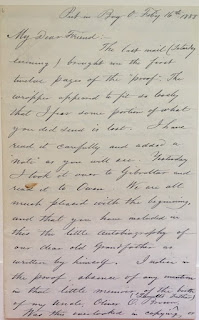 Put in Bay O. Feby 16th 1888
My Dear Friend:
The last mail (Saturday
evening) brought me the first
twelve pages of the "proof". The
wrapper appeared to fit so loosely
that I fear some portion of what
you did send is lost. I have
read it carefully and added a
"note" as you will see. Yesterday
I took it over to Gibraltar and
read it to Owen. We are all
much pleased with the beginning,
and that you have included in
this the little Autobiography of
our dear old Grandfather as
written by himself. I notice in
the proof, absence of any mention
in this little memoir, of the birth
of my Uncle, Oliver O.
Was this overlooked in copying, or